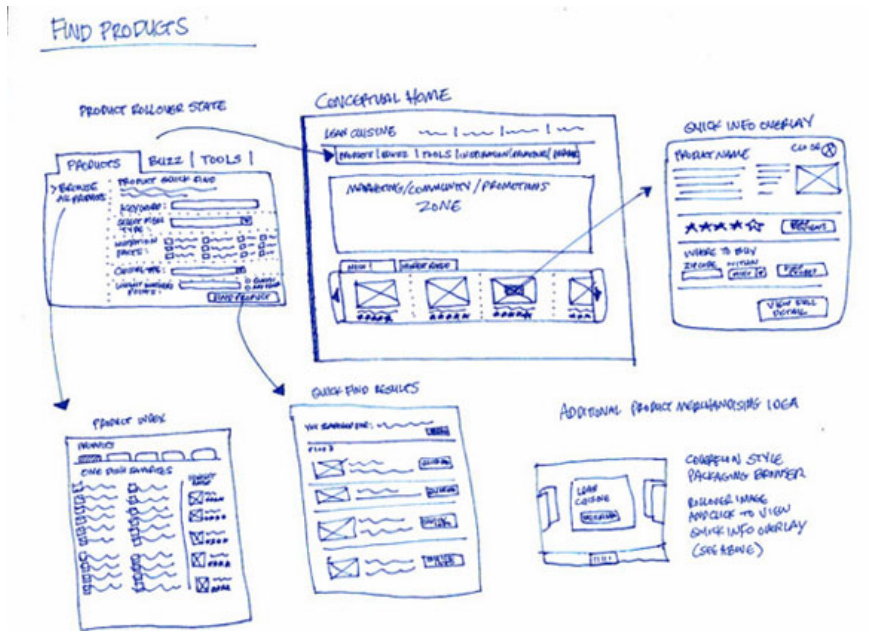 FIND PRODUCTS
PRODUCT ROLLOVER STATE
PRODUCTS BUZZ | TOOLS |
> BROWSE
ALL PRODUCTS
PRODUCT QUICK FIND
KEYWORD:
SELECT MEAL
TYPE:
NUTRITION
FACTS:
CALORIES:
WEIGHT WATCHERS
POINTS:
FIND PRODUCT
CONCEPTUAL HOME
LEAN CUISINE
PRODUCTS | BUZZ | TOOLS |
MARKETING/COMMUNITY/PROMOTIONS
ZONE
NEW
HIGHEST RATED
QUICK INFO OVERLAY
PRODUCT NAME
CLOSE X
READ
REVIEWS
WHERE TO BUY
ZIPCODE WITHIN
VIEW FULL
DETAIL
PRODUCT INDEX
PRODUCTS
ONE DISH FAVORITES
HIGHEST
RATED
QUICK FIND RESULTS
YOU SEARCHED FOR:
ADDITIONAL PRODUCT MERCHANDISING IDEA
LEAN
CUISINE
COVERFLOW STYLE
PACKAGING BROWSER
ROLLOVER IMAGE
AND CLICK TO VIEW
QUICK INFO OVERLAY
(SEE ABOVE)